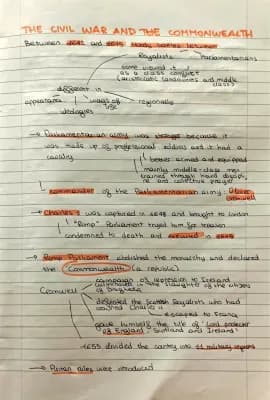 THE CIVIL WAR AND THE COMMONWEALTH
Between 1642 and 1649 bloody battles between
Royalists Parliamentarians
some viewed it
as a class conflict
(aristocratic landowners and middle
class)
different in
appearance ways of life regionally
ideologies
→ Parliamentarian army was stronger because it
was made up of professional soldiers and it had a
cavalry
better armed and equipped
mainly middle-class men
trained through hard discipl.
and collective prayer
commander of the Parliamentarian army: Oliver
Cromwell
→ Charles I was captured in 1648 and brought to London
"Rump" Parliament tried him for treason
condemned to death and executed in 1649
→ Rump Parliament abolished the monarchy and declared
the Commonwealth (a republic)
Cromwell
campaign of repression to Ireland
culminated in the slaughter of the citizens
of Drogheda
defeated the Scottish Royalists who had
crowned Charles II
escaped to France
gave himself the title of "Lord protector
of England, Scotland and Ireland"
1655 divided the country into 11 military regions
→ Puritan rules were introduced